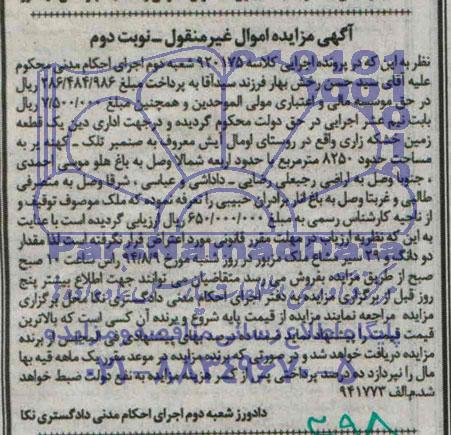 آگهی مزایده اموال غیر منقول ـ نوبت دوم
نظر به این که در پرونده اجرایی کلاسه ۹۲۰۱۷۵ شعبه دوم اجرای احکام مدنی محکوم
علیه آقای سید حسن رخش بهار فرزند سیدآقا به پرداخت مبلغ ۲۸۶/۴۸۴/۹۸۶ ریال
در حق موسسه مالی و اعتباری مولی الموحدین و همچنین مبلغ ۷/۵۰۰/۰۰۰ ریال
بابت نیم عشر اجرایی در حق دولت محکوم گردیده و درجهت اجرای دین یک قطعه
زمین خشکه زاری واقع در روستای اومال آیش معروف به صنمبر تلک ـ کهنه پر به
مساحت حدود ۸۲۵۰ مترمربع با حدود اربعه شمالا وصل به باغ هلو موسی احمدی
، جنوبا وصل به اراضی رجبعلی رضایی ـ داداشی و عباسی ـ شرقا وصل به متصرفی
طالبی و غربتا وصل به باغ انار برادران حبیبی را تعرفه نموده که ملک موصوف توقیف و
از ناحیه کارشناس رسمی به مبلغ ۶۵۰/۰۰۰/۰۰۰ ریال ارزیابی گردیده است با عنایت
به این که نظریه ارزیاب در مهلت مقرر قانونی مورد اعتراض قرار نگرفته است لذا مقدار
دو دانگ و ۲۹ سیر مشاع ملک مزبور در روز مورخ ۹۴/۸/۹ راس ساعت ۱۰ صبح
صبح از طریق مزایده بفروش می رسد متقاضیان می توانند جهت اطلاع بیشتر پنج
روز قبل از برگزاری مزایده به دفتر اجرای احکام مدنی دادگستری نکا محل برگزاری
مزایده مراجعه نمایند مزایده از قیمت پایه شروع و برنده آن کسی است که بالاترین
قیمت را پیشنهاد نماید ده درصد بهای پیشنهادی فی المجلس از برنده
مزایده دریافت خواهد شد و در صورتی که برنده مزایده در موعد مقرر یک ماهه قیه بها
مال را نپردازد ده درصد پرداختی پس از کسر هزینه مزایده به نفع دولت ضبط خواهد
شد.م/الف ۹۴۱۷۷۳
دادورز شعبه دوم اجرای احکام مدنی دادگستری نکا
۳۹۸
پایگاه اطلاع رسانی مناقصه و مزایده
۰۲۱-۸۸۳۴۹۶۷۰-۵